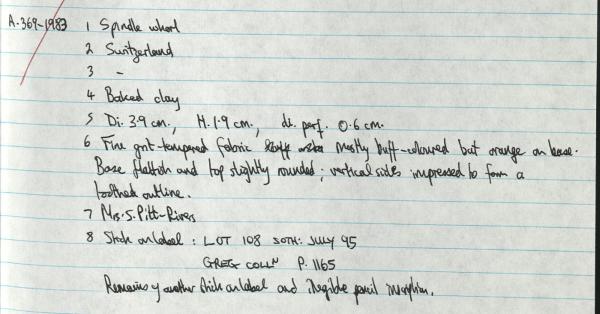 A.369-1983 1 Spindle whorl
2 Switzerland
3 -
4 Baked clay
5 Di. 3.9 cm., H. 1.9 cm., di. perf. 0.6 cm.
6 Fine grit-tempered fabric mostly buff-coloured but orange on base.
Base flattish and top slightly rounded, vertical sides impressed to form a
toothed outline.
7 Mrs. S. Pitt-Rivers
8 Stick on label : LOT 108 SOTH: JULY 95
GREG COLLN P. 1165
Remains of another stick on label and illegible pencil inscription.